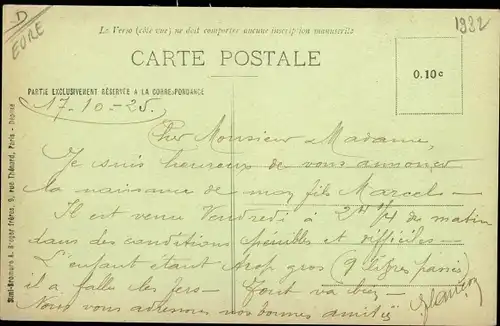 D
EURE
1982
Le Verso (côté vue) ne doit comporter aucune inscription manuscrite
CARTE POSTALE
0.10c
PARTIE EXCLUSIVEMENT RÉSERVÉE A LA CORRESPONDANCE
17-10-25.
Monsieur Madame,
Je suis heureux de vous annoncer
la naissance de mon fils Marcel -
Il est venu Vendredi à 2H 1/4 du matin
dans des conditions pénibles et difficiles -
L'enfant étant trop gros (9 libres passés)
il a fallu les fers - Tout va bien -
Nous vous adressons nos bonnes amitiés
Simi-Bromure A. Breger frères, 9, rue Thénard, Paris - Déposé